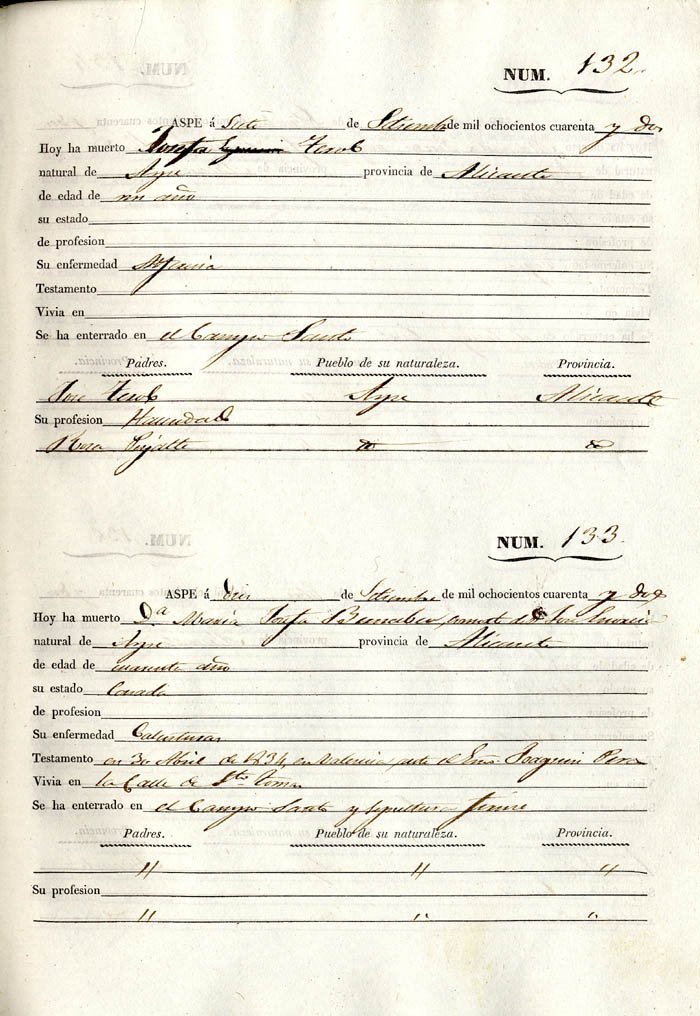 NUM. 132.
ASPE á Siete de Setiembre de mil ochocientos cuarenta y dos
Hoy ha muerto Josefa Terol
natural de Aspe provincia de Alicante
de edad de un año
su estado
de profesion
Su enfermedad
Testamento
Vivia en
Se ha enterrado en el Campo Santo
Padres. Pueblo de su naturaleza. Provincia.
Jose Terol Aspe Alicante
Su profesion Hacendado
Rosa id id
NUM. 133.
ASPE á diez de Setiembre de mil ochocientos cuarenta y dos
Hoy ha muerto D.ª Maria Josefa consorte de
natural de Aspe provincia de Alicante
de edad de cuarenta años
su estado Casada
de profesion
Su enfermedad Calenturas
Testamento en 30 Abril de 1834, en Valencia, ante el Joaquin
Vivia en la Calle de Sto. Tomas
Se ha enterrado en el Campo Santo y sepultura
Padres. Pueblo de su naturaleza. Provincia.
" " "
Su profesion
" " "